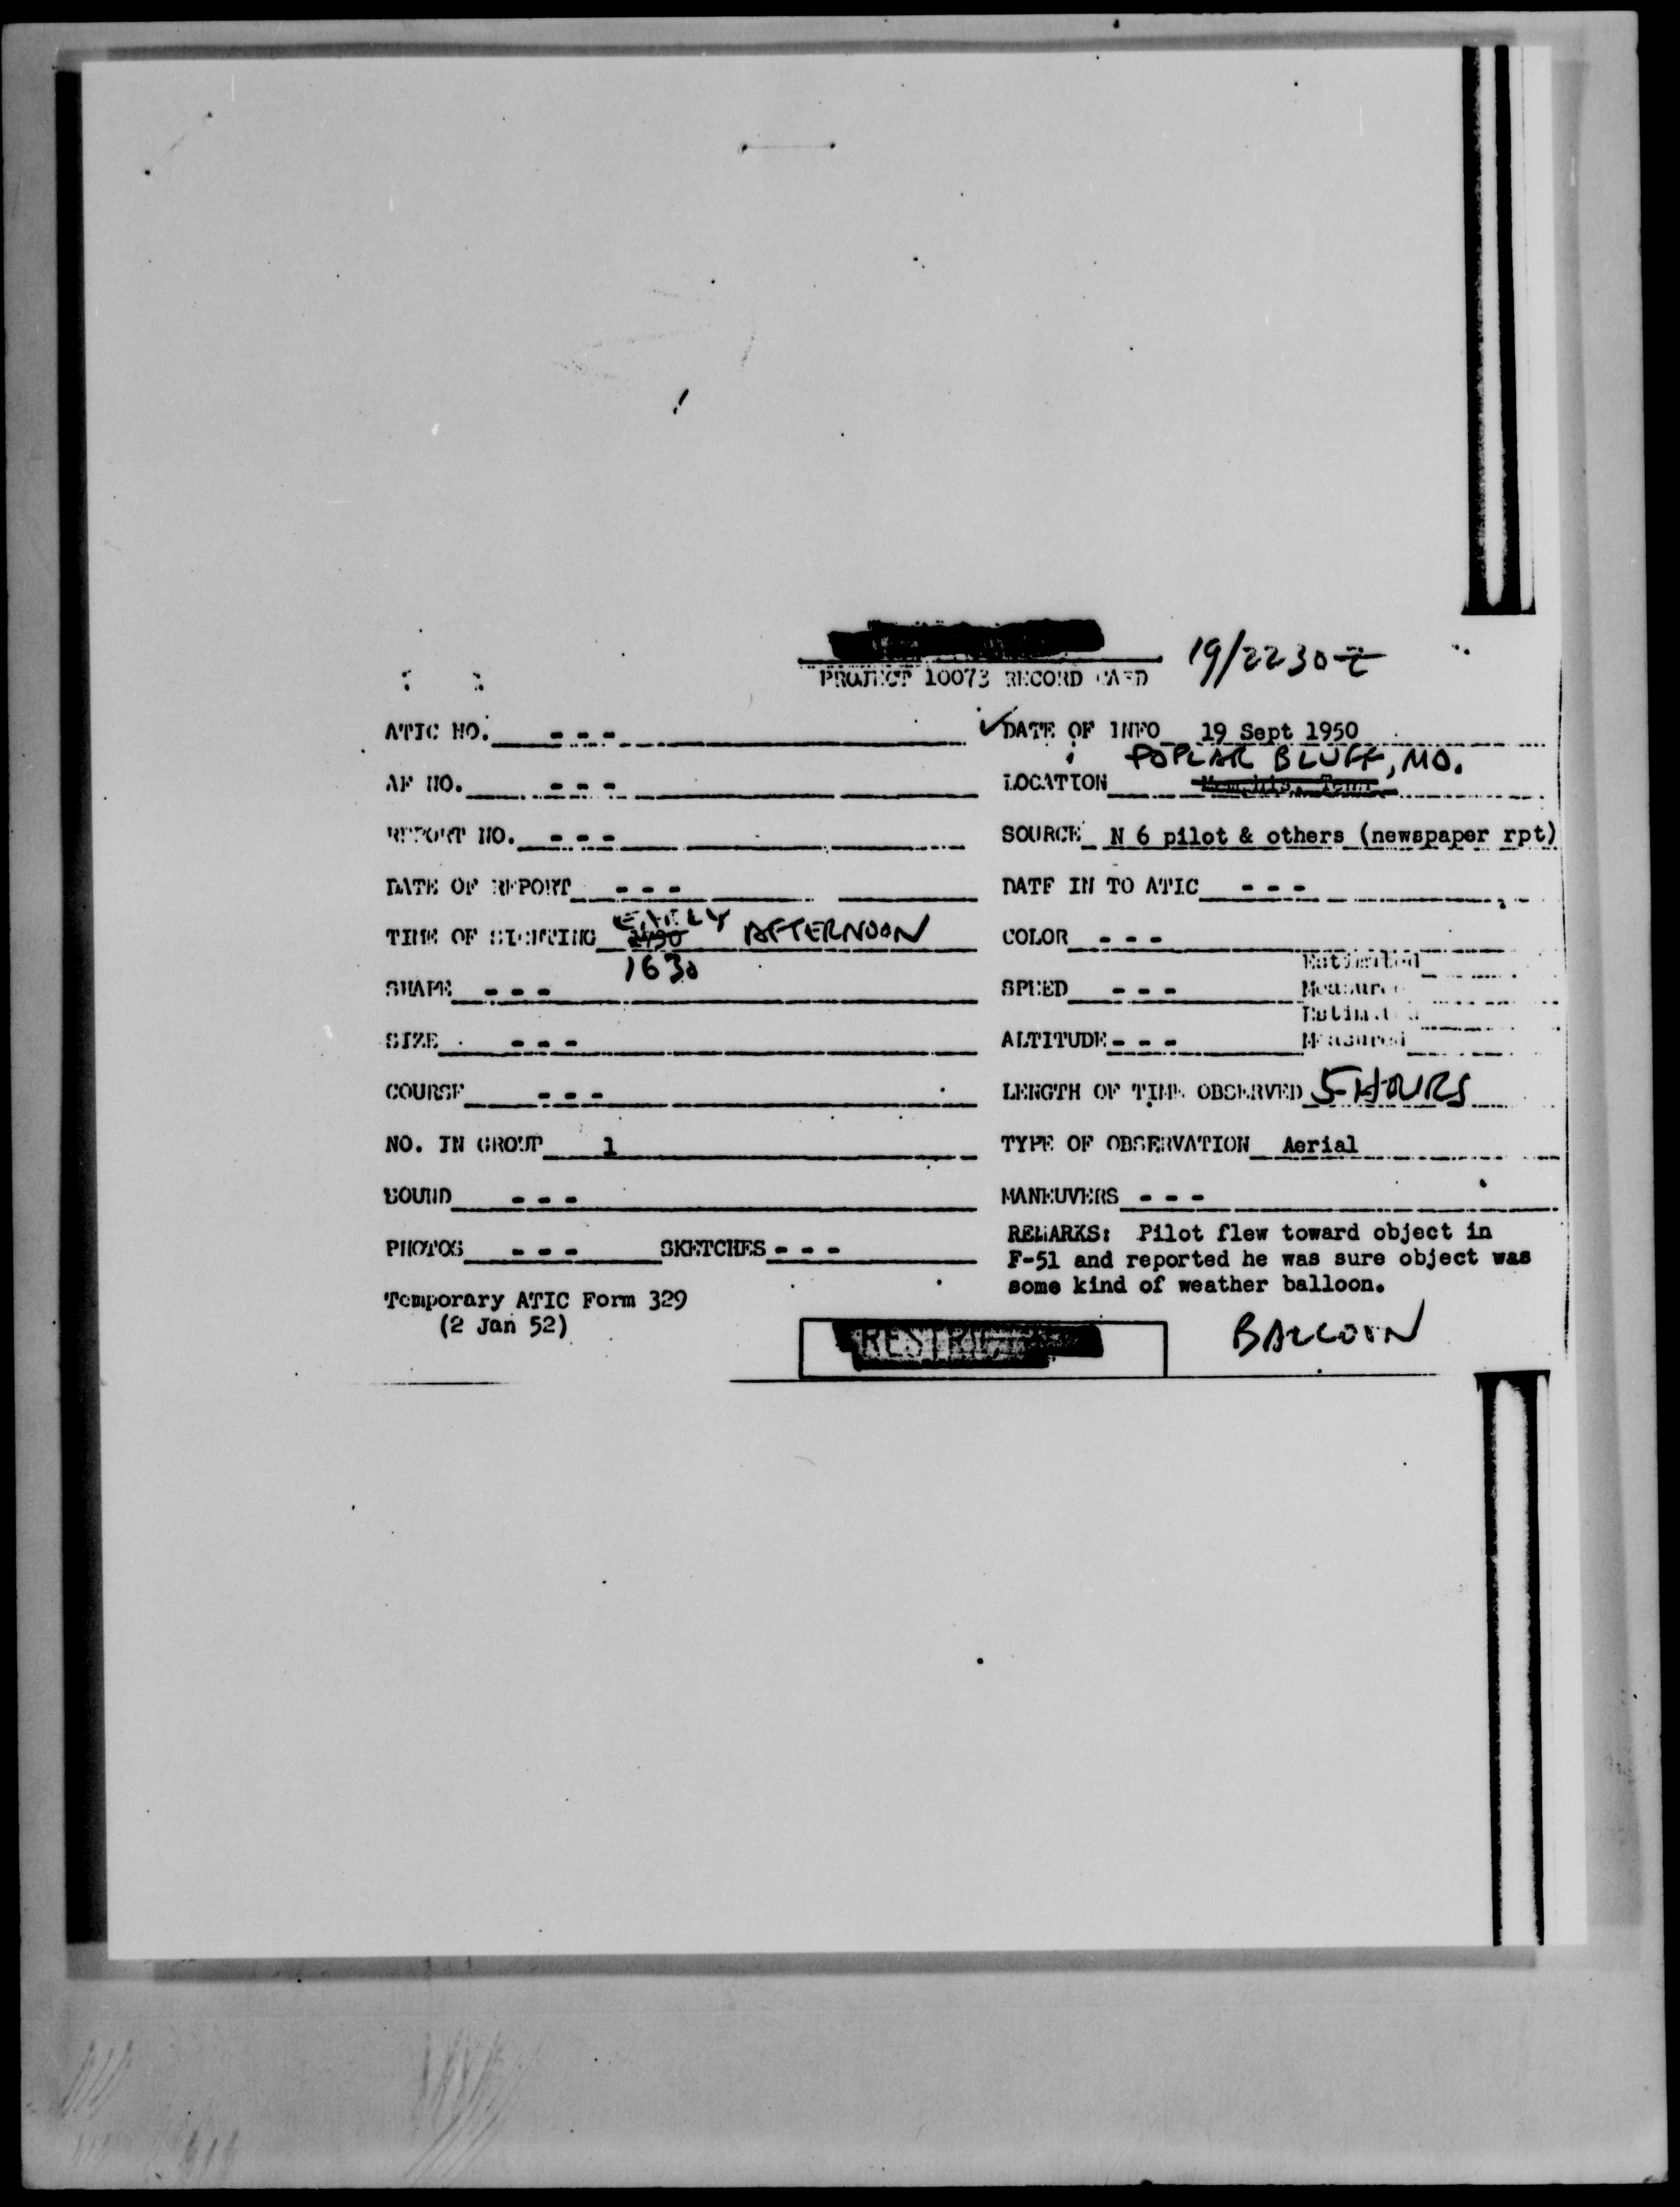 19/2230Z
PROJECT 10073 RECORD CARD
ATIC NO. - - -
✓DATE OF INFO 19 Sept 1950
POPLAR BLUFF, MO.
AF NO. - - -
LOCATION Memphis, Tenn
REPORT NO. - - -
SOURCE N 6 pilot & others (newspaper rpt)
DATE OF REPORT - - -
DATE IN TO ATIC - - -
EARLY AFTERNOON
TIME OF SIGHTING
COLOR - - -
1630
Estimated
SHAPE - - -
SPEED - - - Measured
Estimated
SIZE - - -
ALTITUDE - - - Measured
COURSE - - -
LENGTH OF TIME OBSERVED 5 HOURS
NO. IN GROUP 1
TYPE OF OBSERVATION Aerial
SOUND - - -
MANEUVERS - - -
PHOTOS - - - SKETCHES - - -
REMARKS: Pilot flew toward object in
F-51 and reported he was sure object was
some kind of weather balloon.
Temporary ATIC Form 329
(2 Jan 52)
RESTRICTED
BALLOON